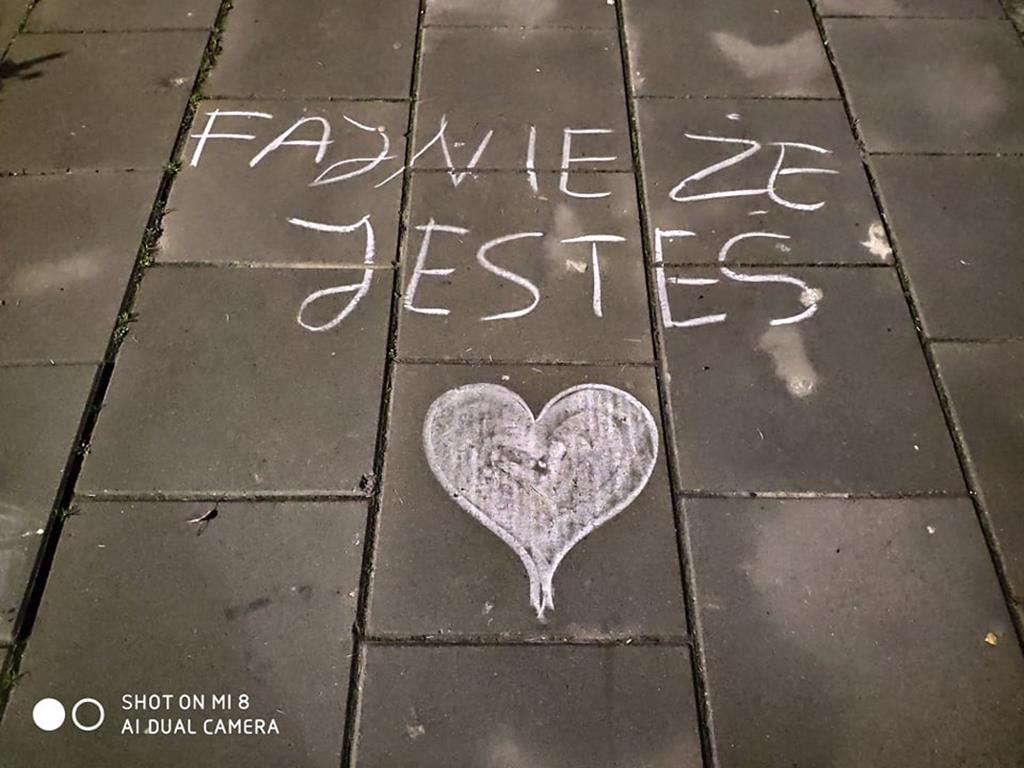 FAJNIE ŻE
JESTEŚ
SHOT ON MI 8
AI DUAL CAMERA